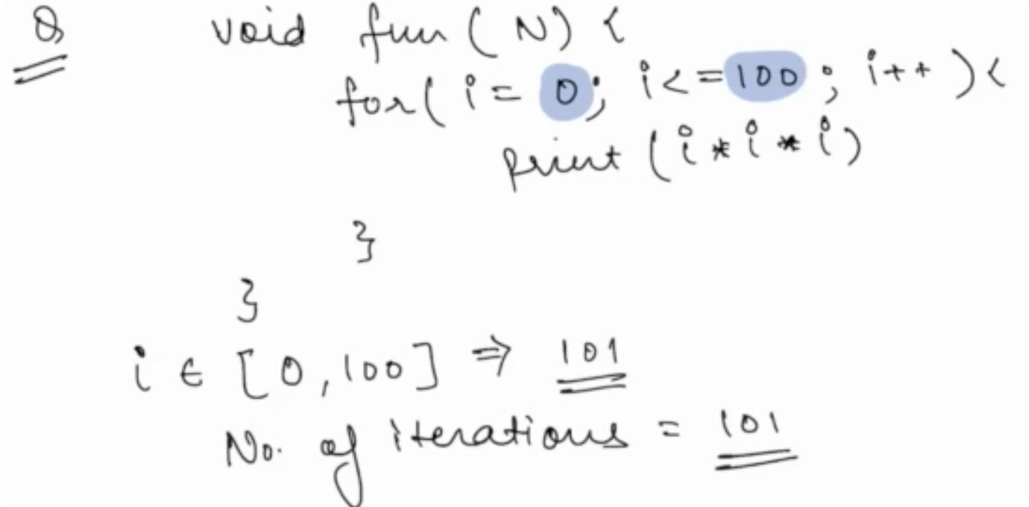 Q void fun (N) {
for( i = 0; i<=100; i++ ) {
print (i*i*i)
}
}
i ∈ [0,100] ⇒ 101
No. of iterations = 101